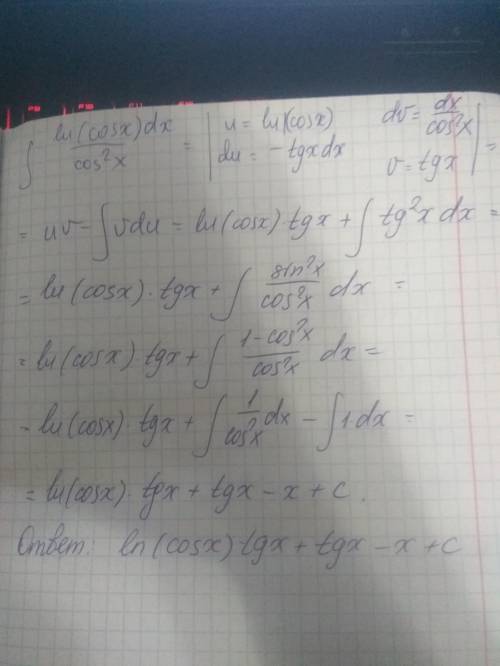 ∫ ln(cosx)dx / cos²x = | u = ln(cosx) dv = dx/cos²x
du = -tgx dx v = tgx | =
= uv - ∫vdu = ln(cosx) tgx + ∫ tg²x dx =
= ln(cosx) · tgx + ∫ sin²x/cos²x dx =
= ln(cosx) · tgx + ∫ 1-cos²x/cos²x dx =
= ln(cosx) · tgx + ∫ 1/cos²x dx - ∫1·dx =
= ln(cosx) · tgx + tgx - x + c.
Ответ: ln(cosx) tgx + tgx - x + c